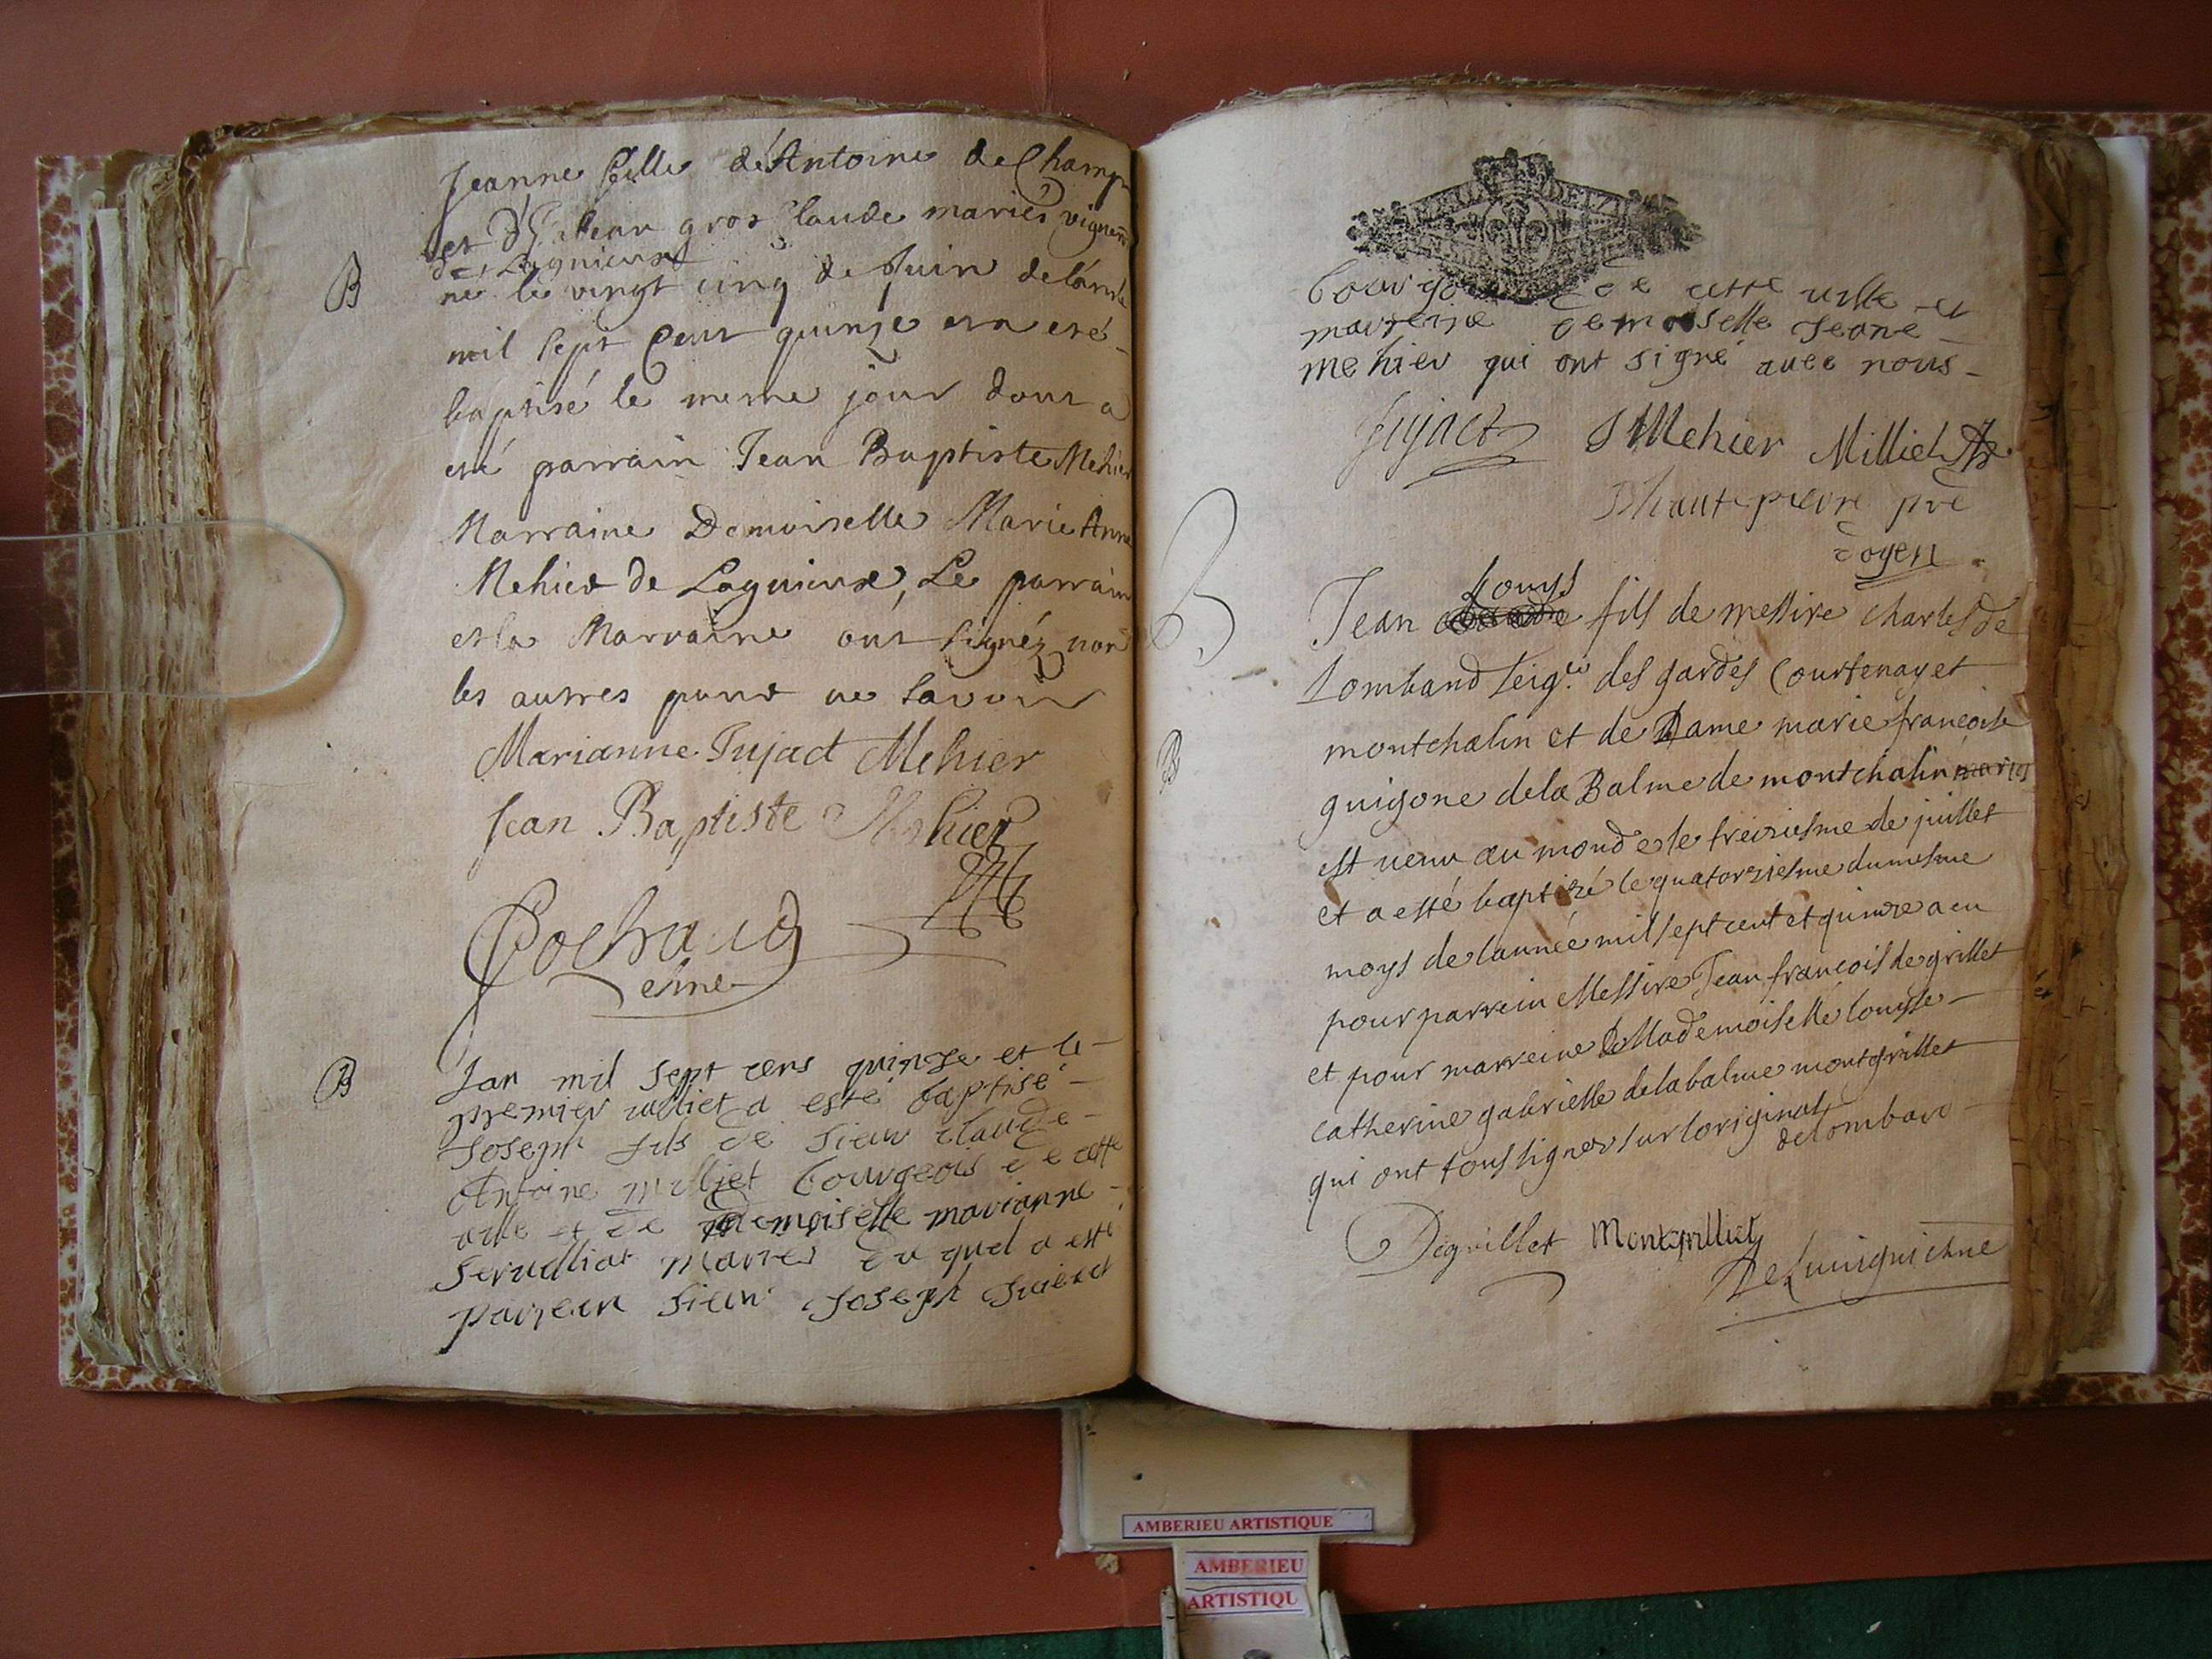 Jeanne fille d'Antoine de Champ
et d' gros Claude mariés vigneron
de Lagnieux
B
né le vingt cinq de Juin de l'année
mil sept cent quinze et a eté
baptisé le meme jour dont a
eté parrain Jean Baptiste Mehier
Marraine Demoiselle Marie Anne
Mehier de Lagnieux, Le parrain
et la Marraine ont signéz non
les autres pour ne savoir
Marianne Jujact Mehier
Jean Baptiste Mehier
Cochaud
B
Lan mil sept cens quinze et le
premier julliet a esté baptisé
Joseph fils de sieur Claude
Antoine Milliet bourgeois de cette
ville et de demoiselle marianne
mariés du quel a esté
parrein sieur Joseph
bourgois de cette ville et
marreine demoiselle Jeane
mehier qui ont signé avec nous
Jujact J Mehier Milliet
Dhautepierre pre
doyen
B
Louys
Jean fils de messire charles de
Lombard seigr. des gardes Courtenay et
B
montchalin et de Dame marie françoise
guigone de la Balme de montchalin mariés
est venu au monde le treiziesme de juillet
et a esté baptizé le quatorziesme du mesme
moys de lannée mil sept cent et quinze a eu
pour parrein Messire Jean françois de grillet
et pour marreine Mademoiselle louyse
catherine gabrielle de la balme montgrillet
qui ont tous signés sur loriginal
delombard
Degrillet Montgrillet
AMBERIEU ARTISTIQUE
AMBERIEU
ARTISTIQU